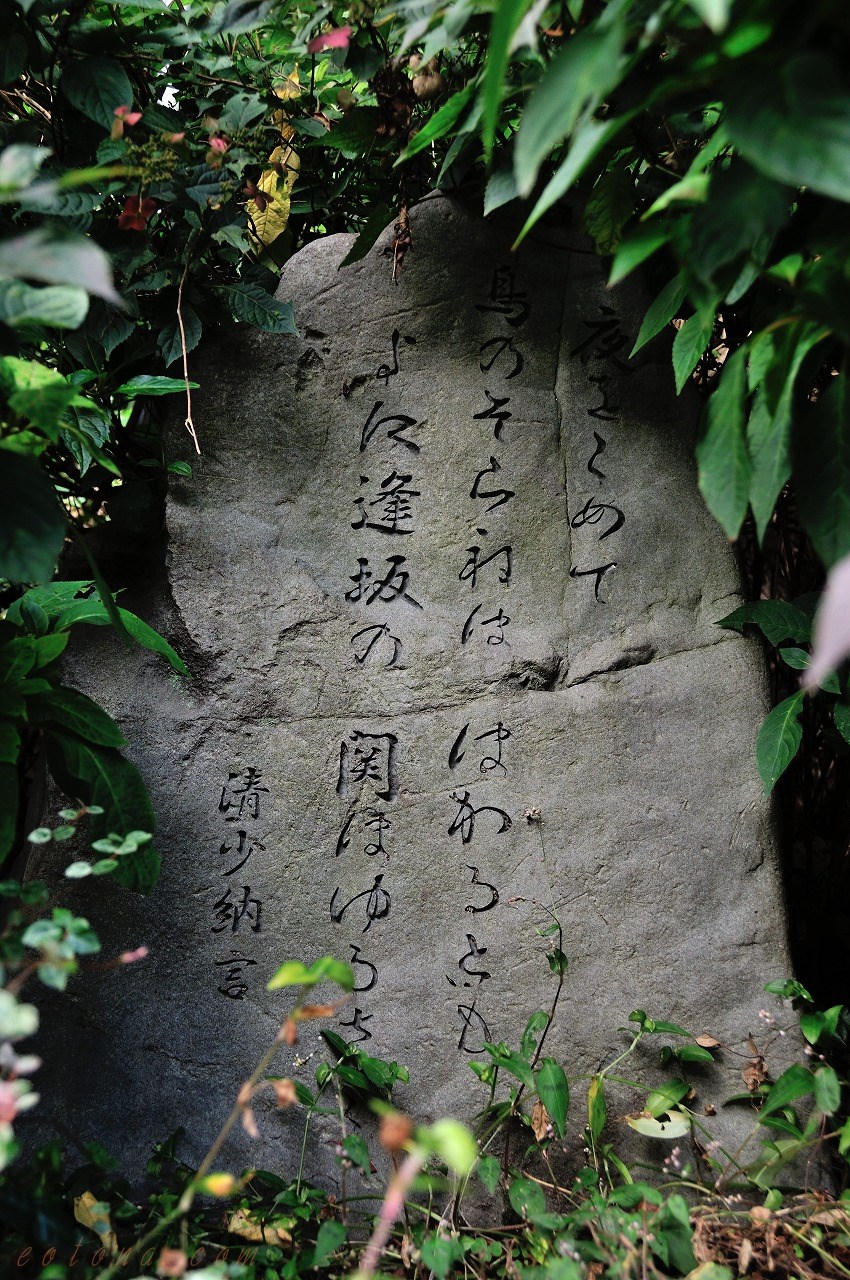 夜をこめて
鳥のそらねは はかるとも
よに逢坂の 関はゆるさ
清少納言